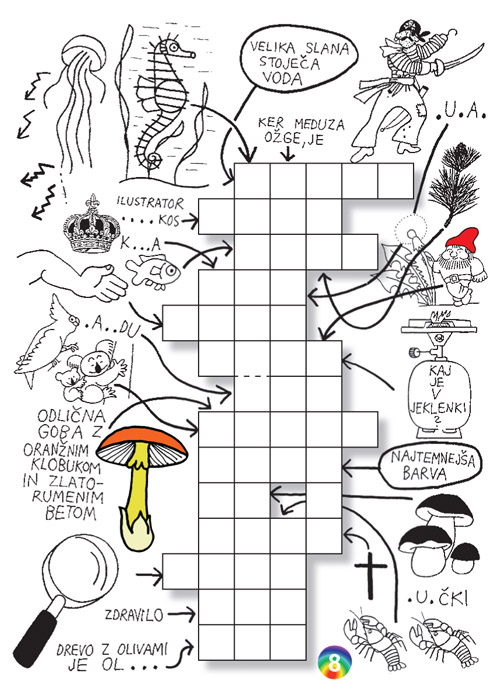 VELIKA SLANA
STOJEČA
VODA
KER MEDUZA
OŽGE, JE
.U.A.
ILUSTRATOR
.....KOS
K...A
.A..DU
KAJ
JE
V
JEKLENKI
?
ODLIČNA
GOBA Z
ORANŽNIM
KLOBUKOM
IN ZLATO-
RUMENIM
BETOM
NAJTEMNEJŠA
BARVA
.U.ČKI
ZDRAVILO
DREVO Z OLIVAMI
JE OL....
8